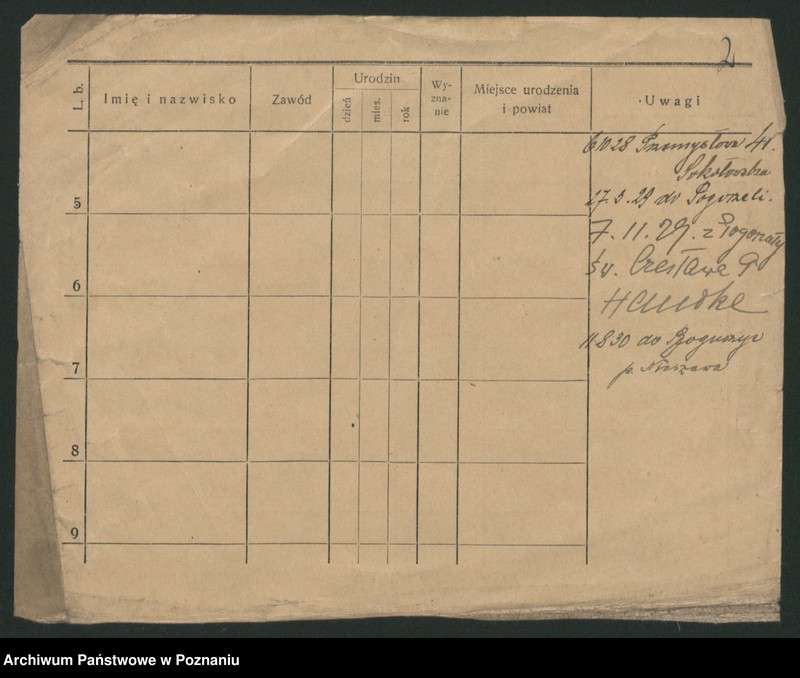 2
L. b.
Imię i nazwisko
Zawód
Urodzin
dzień
mies.
rok
Wy-
zna-
nie
Miejsce urodzenia
i powiat
Uwagi
6 10 28 Przemysłowa 41.
Sokołowska
17.3.29 do Pogorzeli.
5
7.11.29. z Pogorzały
św. Czesława
6
Handke
11 8 30 do
7
p. Nieszawa
8
9
Archiwum Państwowe w Poznaniu